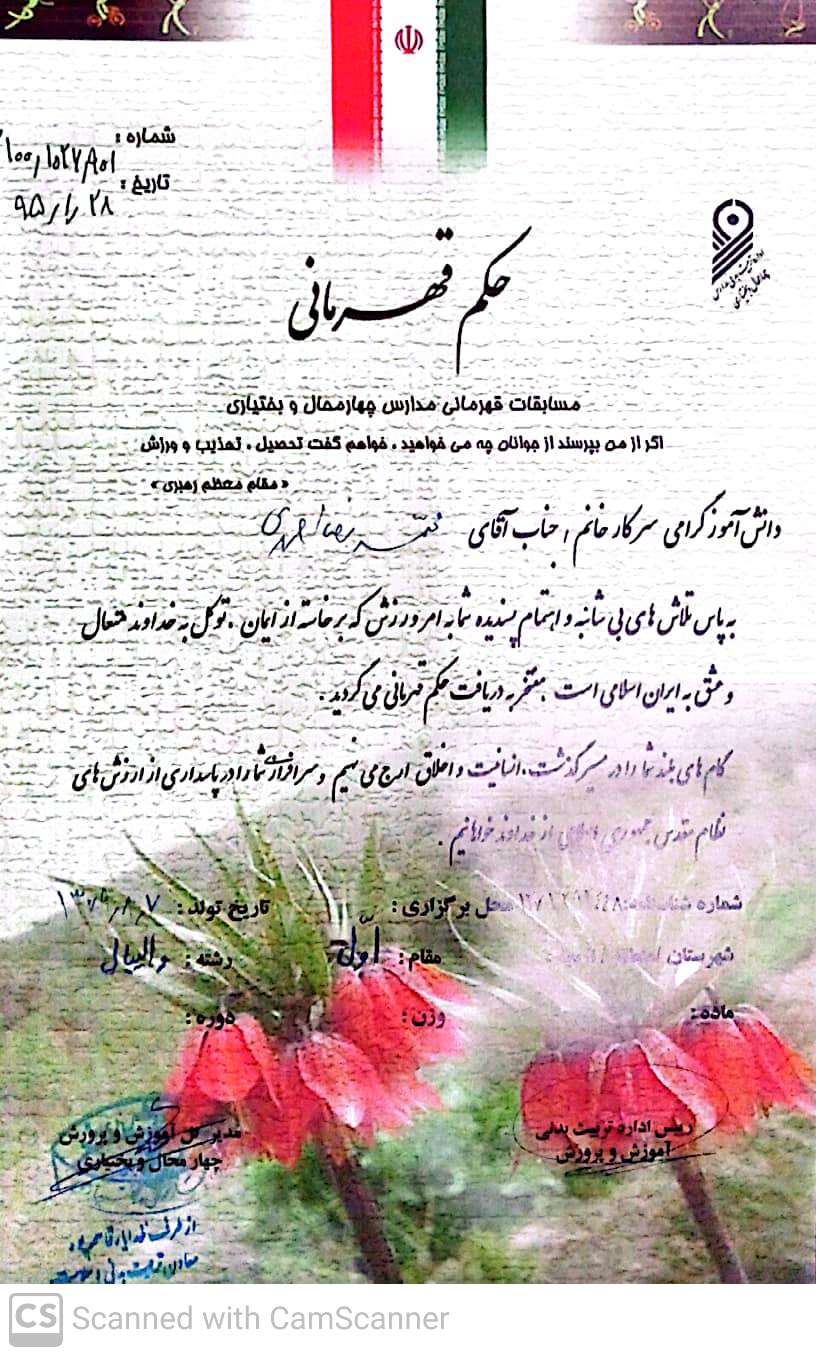 شماره :
تاریخ : ۹۵/۱/۲۸
حکم قهرمانی
مسابقات قهرمانی مدارس چهارمحال و بختیاری
اگر از من بپرسند از جوانان چه می خواهید ، خواهم گفت تحصیل ، تهذیب و ورزش
« مقام معظم رهبری »
دانش آموز گرامی سرکار خانم / جناب آقای
به پاس تلاش های بی شائبه و اهتمام پسندیده شما به امر ورزش که برخاسته از ایمان ، توکل به خداوند متعال
و عشق به ایران اسلامی است ، مفتخر به دریافت حکم قهرمانی می گردید .
گام های بلند شما را در مسیر گذشت ، انسانیت و اخلاق ارج می نهیم و سرافرازی شما را در پاسداری از ارزش های
نظام مقدس جمهوری اسلامی از خداوند خواهانیم .
شماره شناسنامه: محل برگزاری : تاریخ تولد :
شهرستان / منطقه / ناحیه : مقام : اول رشته : والیبال
ماده : وزن : دوره :
رییس اداره تربیت بدنی
آموزش و پرورش
مدیر کل آموزش و پرورش
چهار محال و بختیاری
از طرف
معاون تربیت بدنی و سلامت
CS Scanned with CamScanner